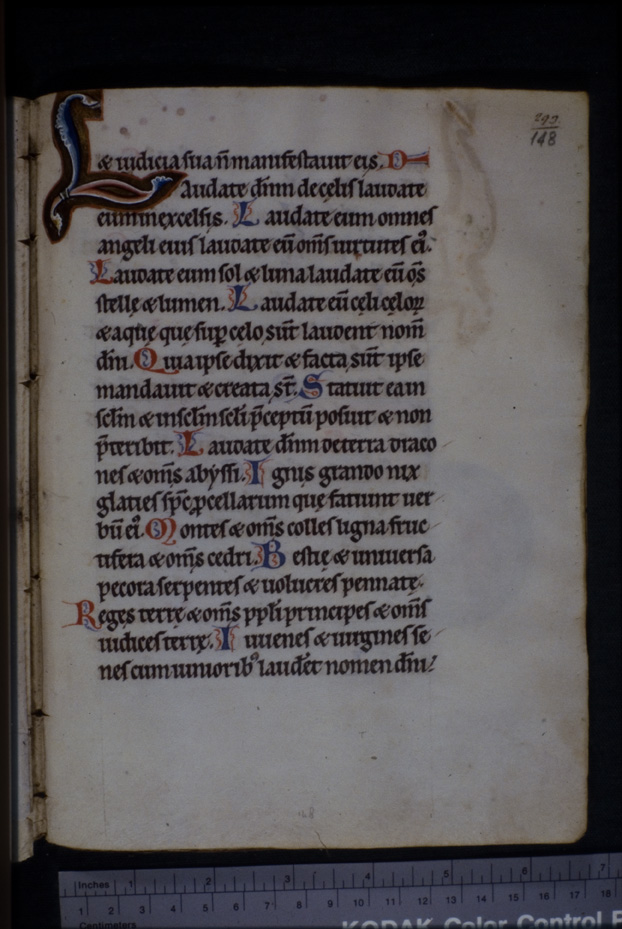 290.
148
& iudicia sua n̄ manifestauit eis. D
Laudate dn̄m de cęlis laudate
eum in excelsis. Laudate eum omnes
angeli eius laudate eū om̄s uirtutes ei᷒.
Laudate eum sol & luna laudate eū om̄s
stellę & lumen. Laudate eū cęli cęloꝝ
& aquę quę suꝑ celo sūt laudent nom̄
dn̄i. Quia ipse dixit & facta sūt ipse
mandauit & creata st̄. Statuit ea in
sclm̄ & in sclm̄ scli p̄ceptū posuit & non
p̄teribit. Laudate dn̄m de terra draco
nes & om̄s abyssi. Ignis grando nix
glaties sp̄c ꝓcellarum quę fatiunt uer
bū ei᷒. Montes & om̄s colles ligna fruc
tifera & om̄s cedri. Bestię & uniuersa
pecora serpentes & uolucres pennatę.
Reges terrę & om̄s ppl̄i principes & om̄s
iudices terrę. Iuuenes & uirgines se
nes cum iuniorib᷒ laudēt nomen dn̄i.
148
Inches 1 2 3 4 5 6 7
1 2 3 4 5 6 7 8 9 10 11 12 13 14 15 16 17 18
Centimeters
KODAK Color Control P